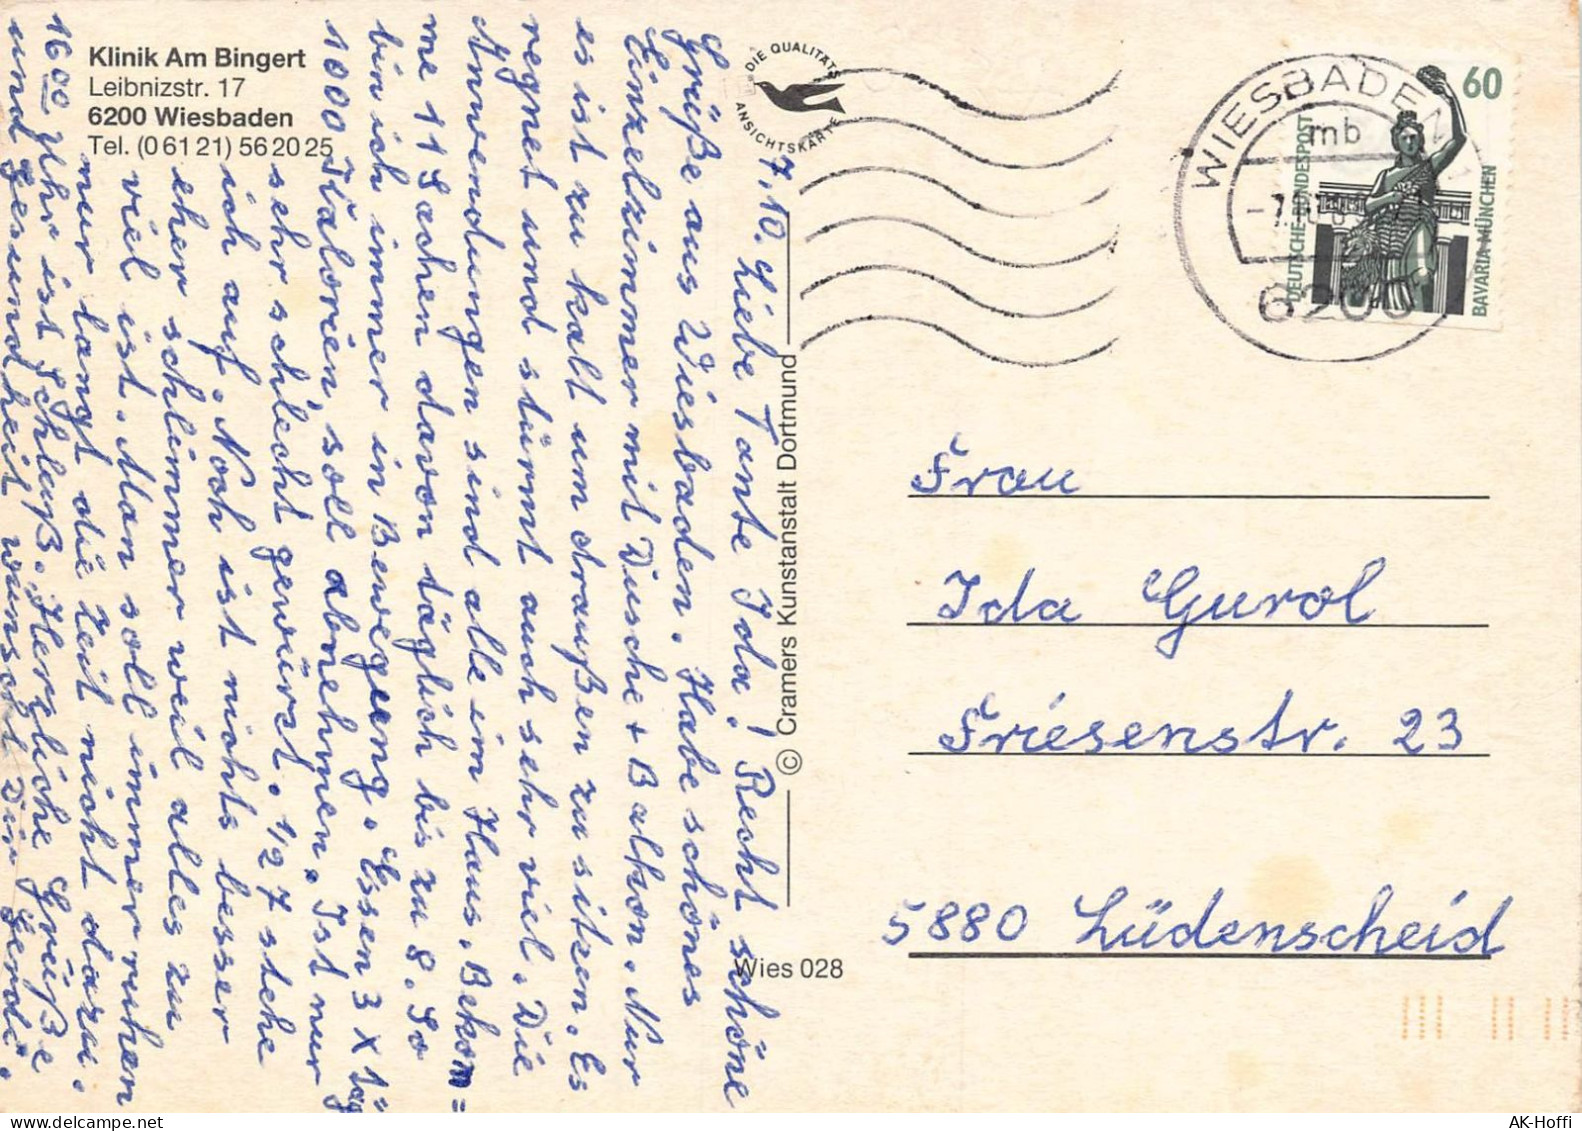 Klinik Am Bingert
Leibnizstr. 17
6200 Wiesbaden
Tel. (0 61 21) 56 20 25
DIE QUALITÄTS
ANSICHTSKARTE
WIESBADEN
mb
6200
60
DEUTSCHE BUNDESPOST
BAVARIA MÜNCHEN
7.10. Liebe Tante Ida! Recht schöne
Grüße aus Wiesbaden. Habe schönes
Einzelzimmer mit Dusche + Balkon. Nur
es ist zu kalt um draußen zu sitzen. Es
regnet und stürmt auch sehr viel. Die
Anwendungen sind alle im Haus. Bekom=
me 11 Sachen davon täglich bis zu 8. So
bin ich immer in Bewegung. Essen 3 X täg
1000 Kalorien, soll abnehmen. Ist nur
sehr schlecht gewürzt. 1/2 7 stehe
ich auf. Noch ist nichts besser
eher schlimmer weil alles zu
viel ist. Man soll immer ruhen
nur langt die Zeit nicht dazu.
16 00 Uhr ist Schluß. Herzliche Grüße
und Gesundheit wünscht Dir Gerdi.
© Cramers Kunstanstalt Dortmund
Wies 028
Frau
Ida Gurol
Friesenstr. 23
5880 Lüdenscheid
AK-Hoffi